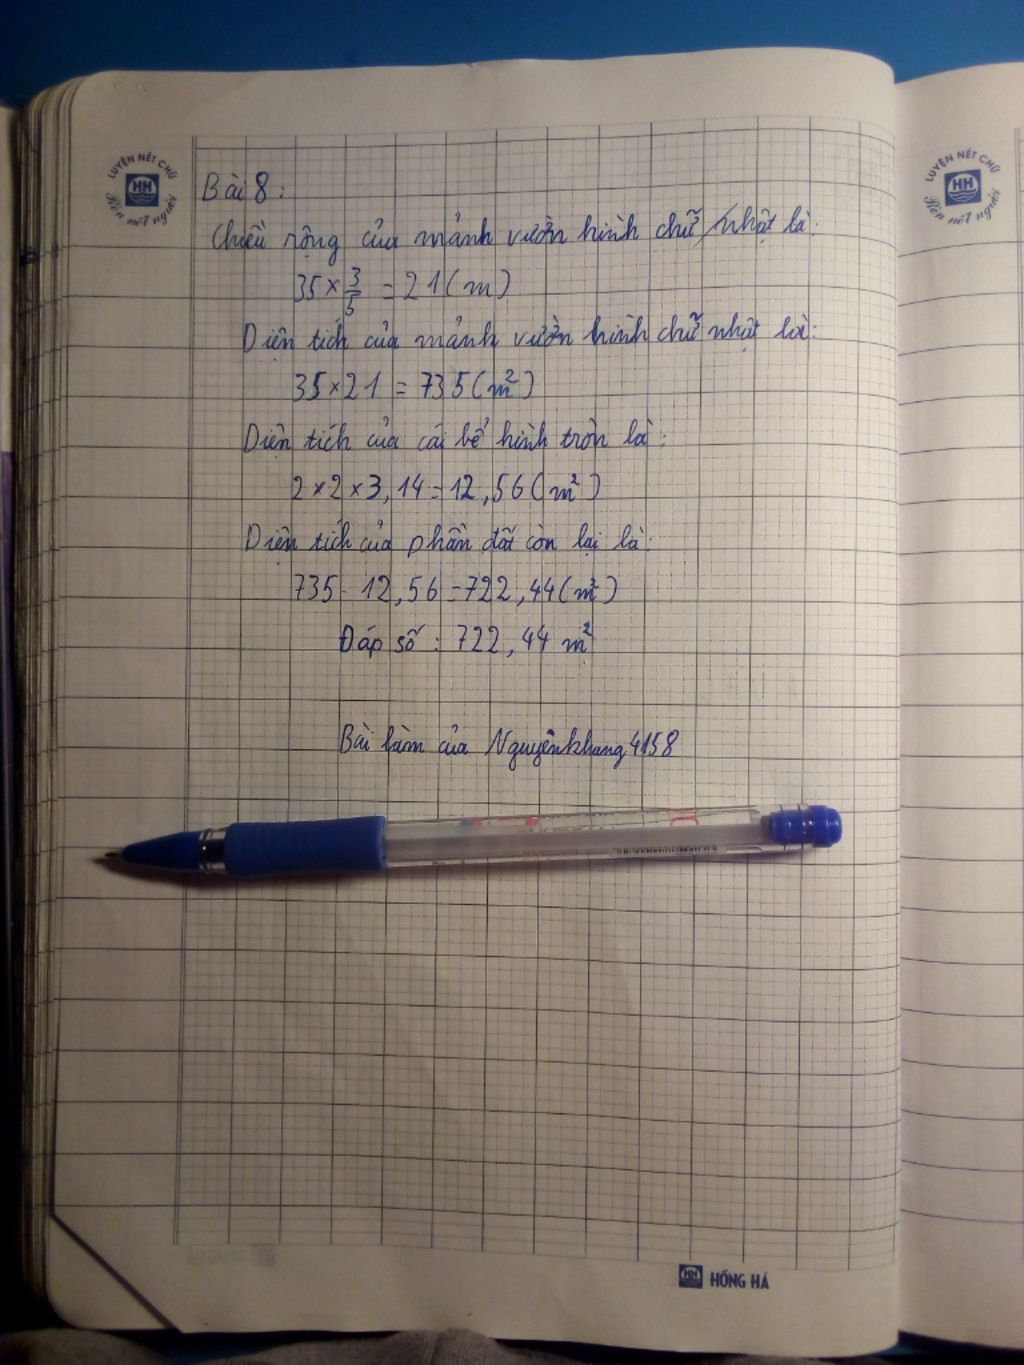 LUYỆN NÉT CHỮ
HH
Rèn nết người
Bài 8:
Chiều rộng của mảnh vườn hình chữ nhật là:
35 × 3/5 = 21 (m)
Diện tích của mảnh vườn hình chữ nhật là:
35 × 21 = 735 (m²)
Diện tích của cái bể hình tròn là:
2 × 2 × 3,14 = 12,56 (m²)
Diện tích của phần đất còn lại là:
735 - 12,56 = 722,44 (m²)
Đáp số : 722,44 m²
Bài làm của Nguyênkhang4158
HH HỒNG HÀ
LUYỆN NÉT CHỮ
HH
Rèn nết người